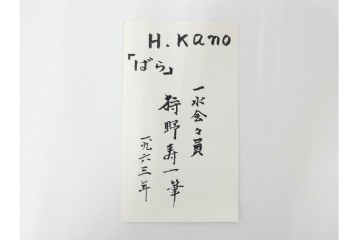 H. Kano
「ばら」
一水会々員
狩野寿一筆
一九六三年